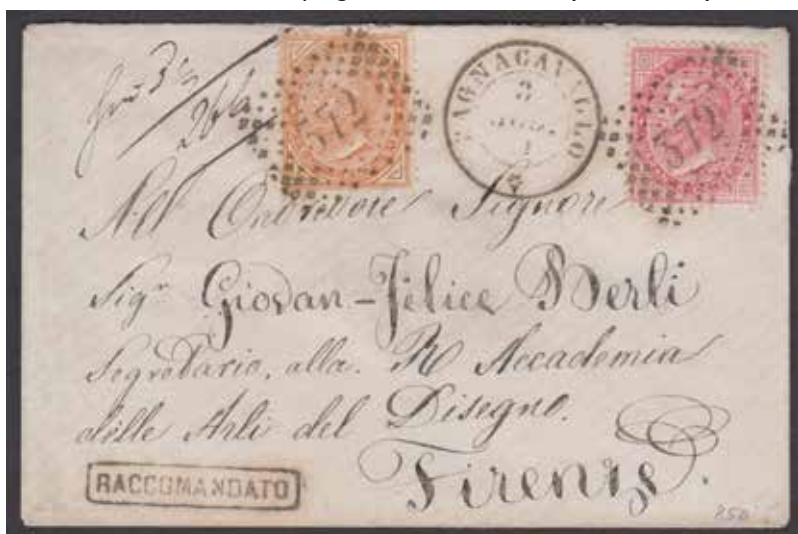 572
BAGNACAVALLO
3
572
All' Onorevole Signore
Sigr Giovan-Felice Berli
Segretario, alla R Accademia
delle Arti del Disegno.
Firenze.
RACCOMANDATO
850